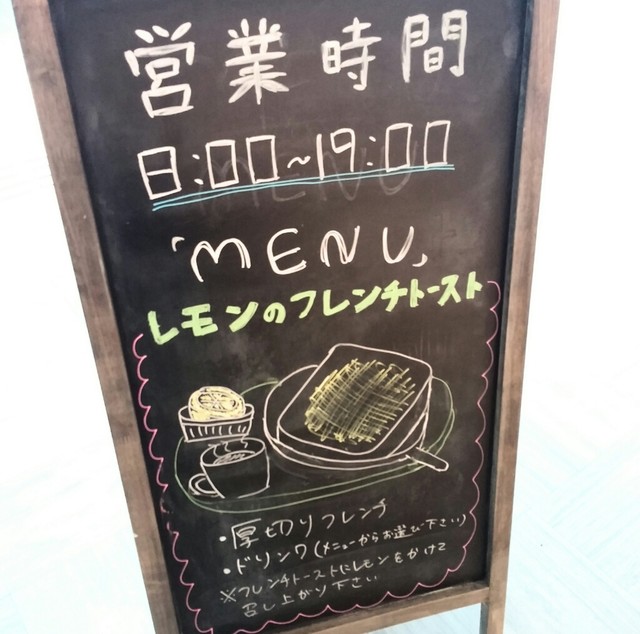 営業時間
8:00~19:00
「MENU」
レモンのフレンチトースト
・厚切りフレンチ
・ドリンク(メニューからお選び下さい)
※フレンチトーストにレモンをかけて
召し上がり下さい